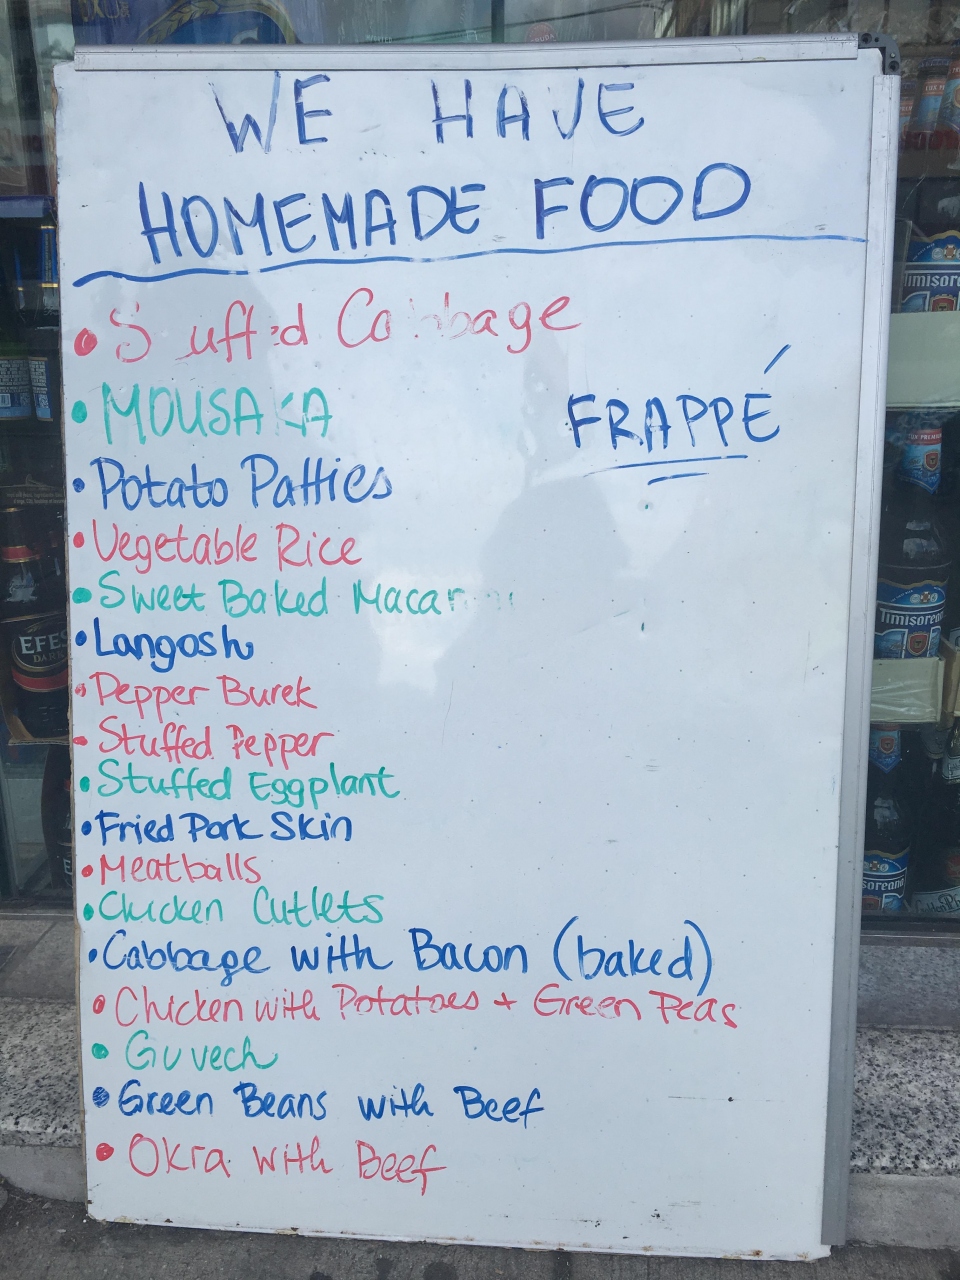 WE HAVE
HOMEMADE FOOD
• Stuffed Cabbage
• MOUSAKA
FRAPPÉ
• Potato Patties
• Vegetable Rice
• Sweet Baked Macaroni
• Langosh
• Pepper Burek
• Stuffed Pepper
• Stuffed Eggplant
• Fried Pork Skin
• Meatballs
• Chicken Cutlets
• Cabbage with Bacon (baked)
• Chicken with Potatoes + Green Peas
• Guvech
• Green Beans with Beef
• Okra with Beef
EFES
DARK
Timisoreana